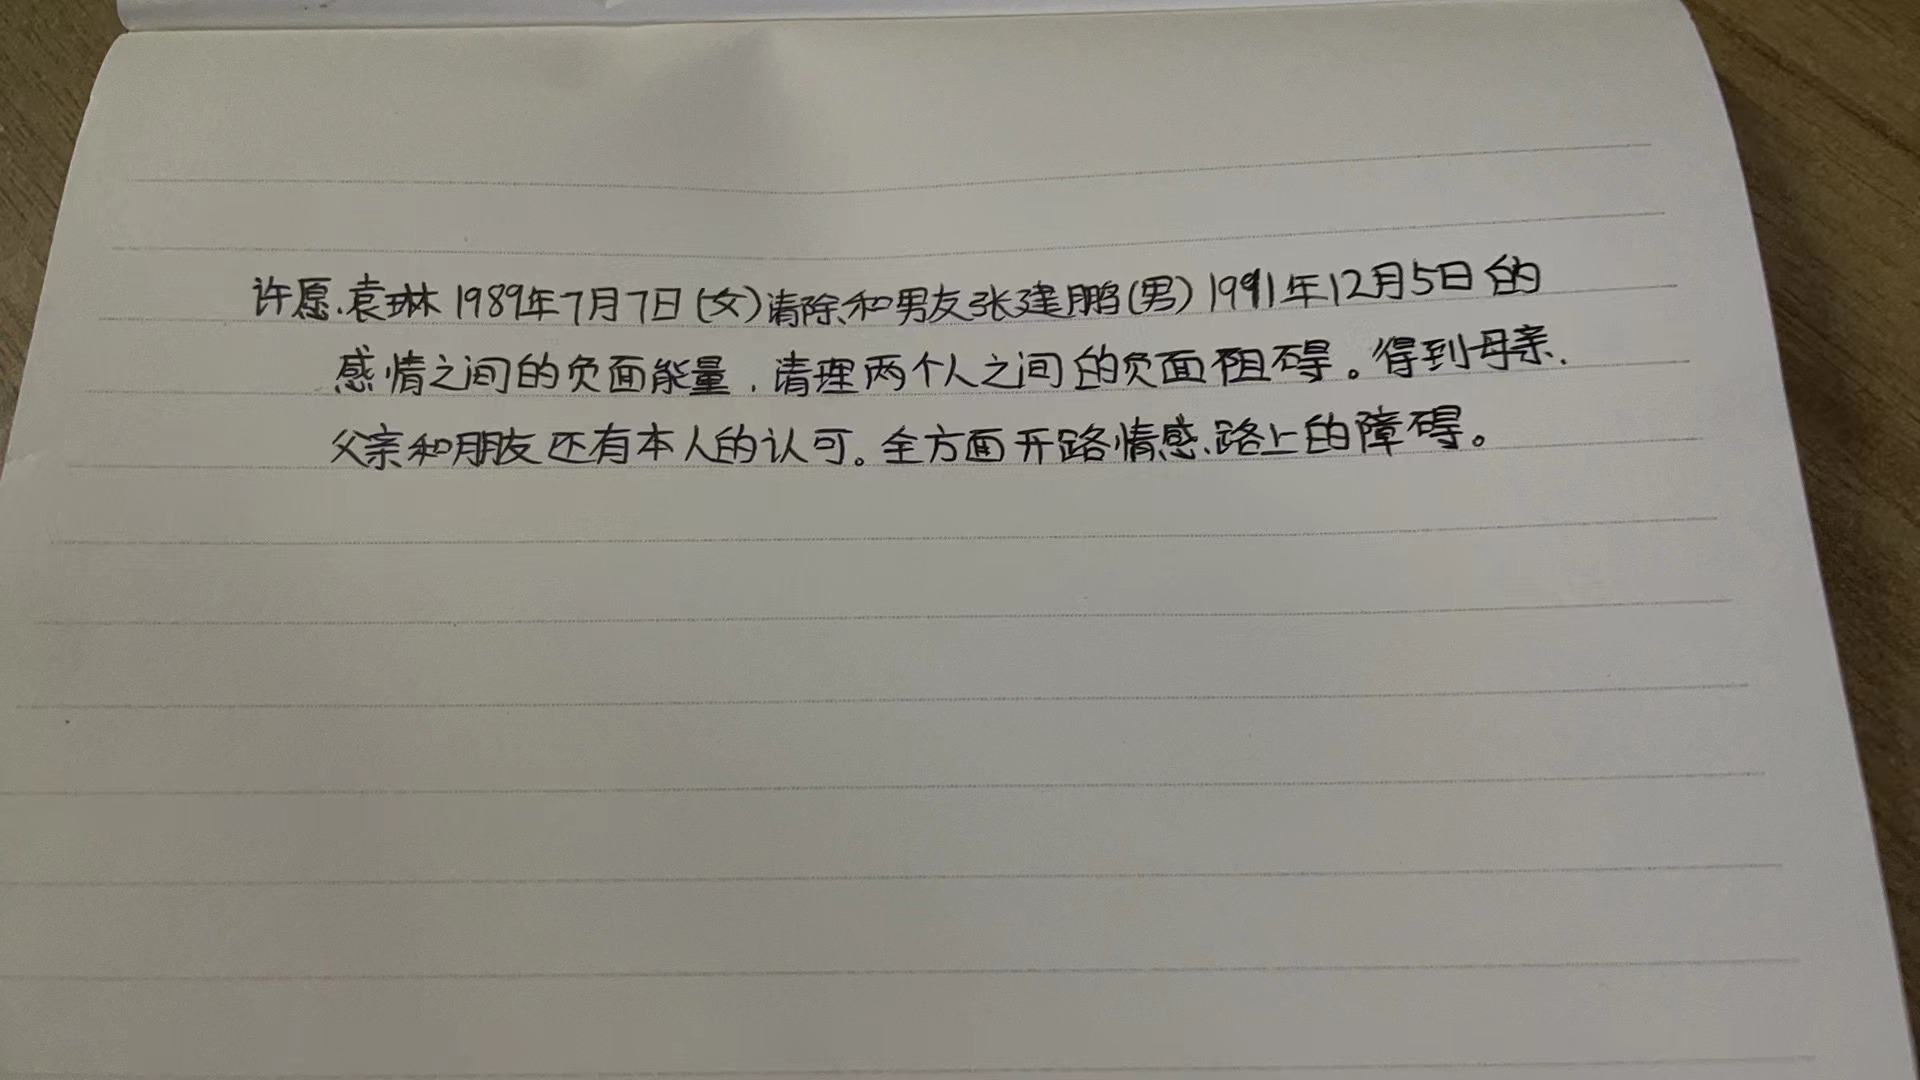 许愿、袁琳1989年7月7日(女)清除和男友张建鹏(男)1991年12月5日的
感情之间的负面能量,清理两个人之间的负面阻碍。得到母亲、
父亲和朋友还有本人的认可。全方面开路情感、路上的障碍。